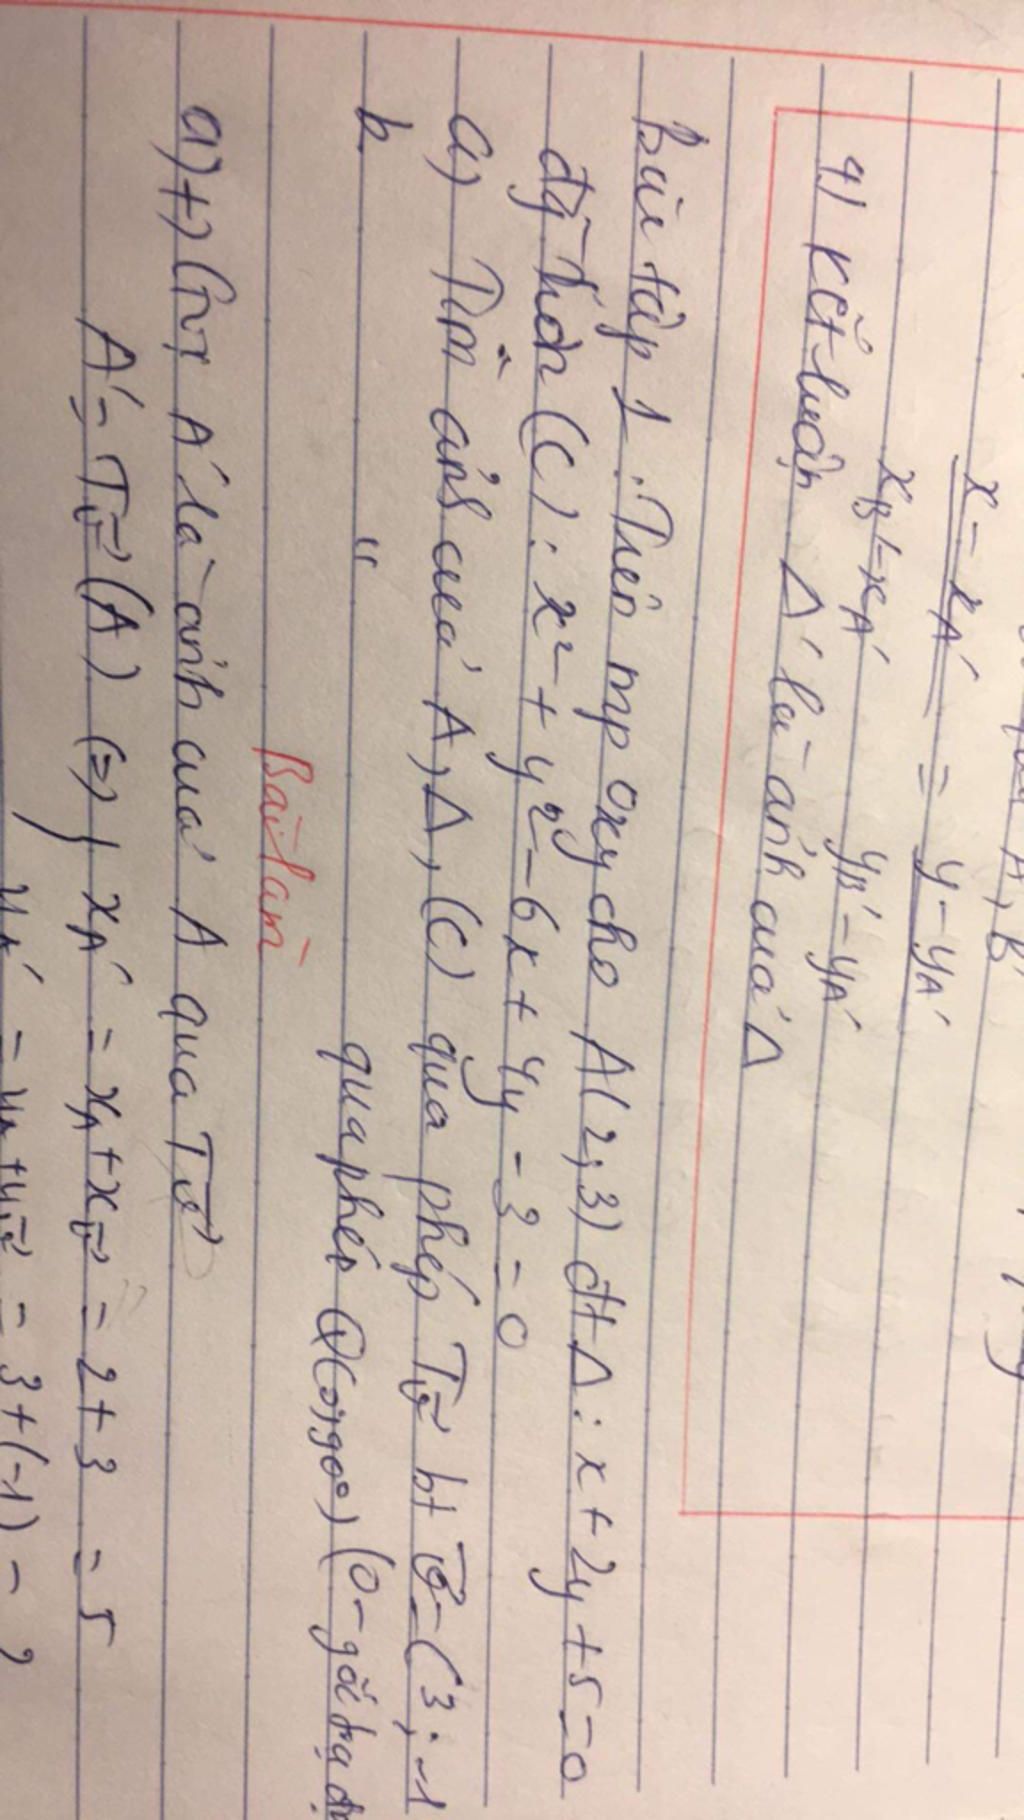 x - xA' = y - yA'
xB' - xA' yB' - yA'
4) Kết luận Δ' là ảnh của Δ
Bài tập 1: Trên mp oxy cho A(2,3) đt Δ: x + 2y + 5 = 0
đg tròn (C): x² + y² - 6x + 4y - 3 = 0
a) Tìm ảnh của A, Δ, (C) qua phép Tv⃗ bt v⃗ = (3; -1
b. " qua phép Q(0,90°) (O - gốc tọa độ
Bài làm
a) +) Gọi A' là ảnh của A qua Tv⃗
A' = Tv⃗ (A) (=) { xA' = xA + xv⃗ = 2 + 3 = 5
yA' = yA + yv⃗ = 3 + (-1) =